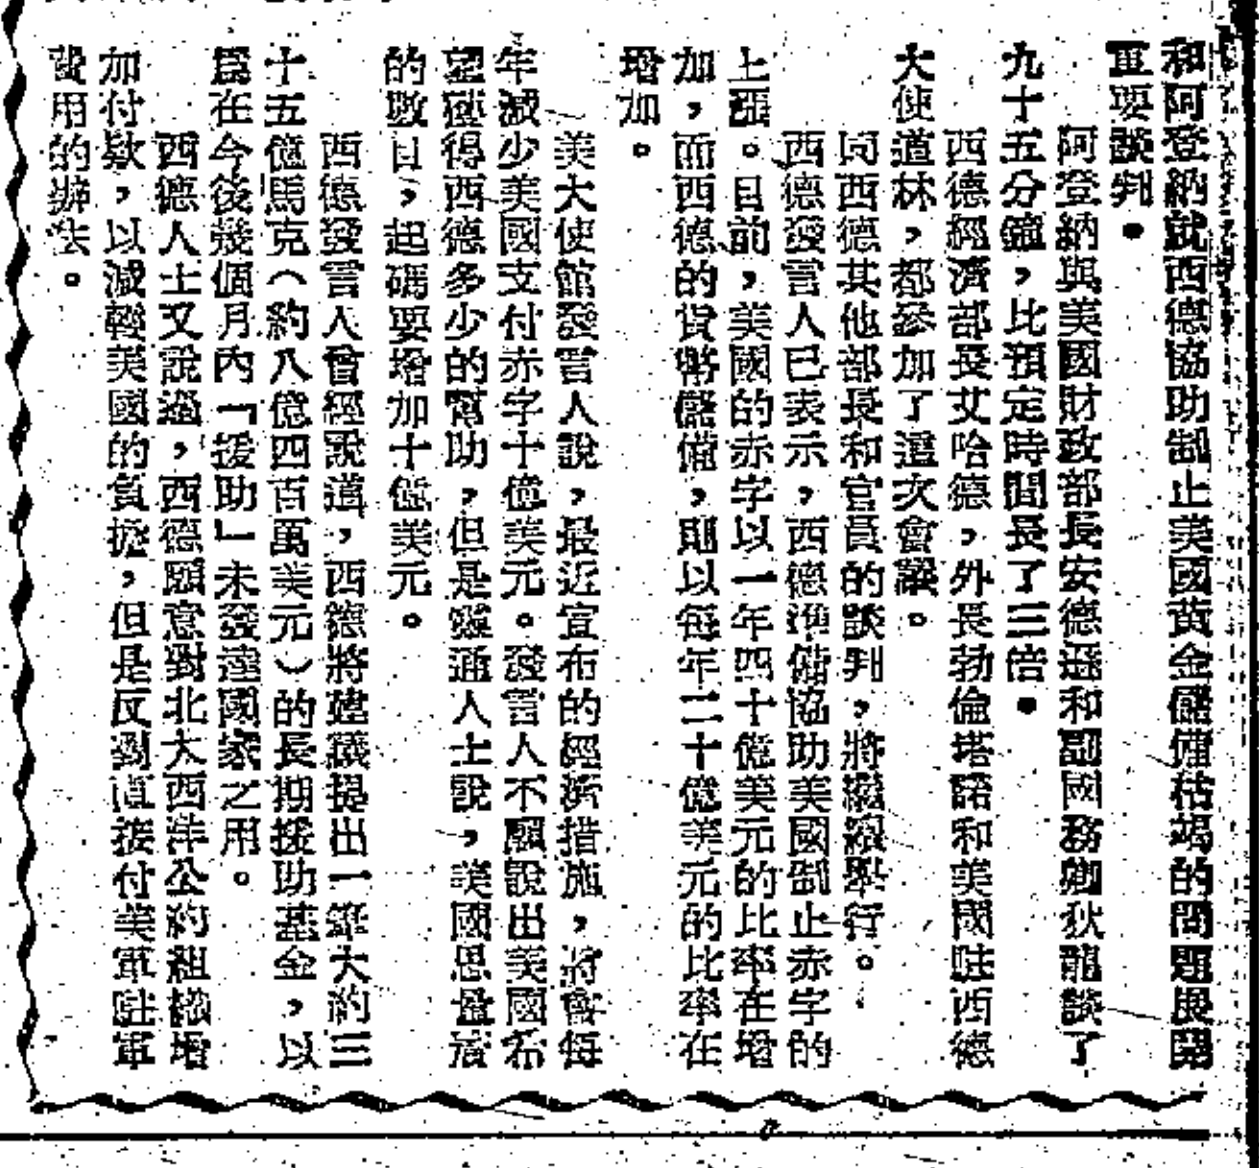 和阿登納就西德協助制止美國黃金儲備枯竭的問題展開
重要談判。
阿登納與美國財政部長安德遜和副國務卿狄龍談了
九十五分鐘，比預定時間長了三倍。
西德經濟部長艾哈德，外長勃倫塔諾和美國駐西德
大使道林，都參加了這次會議。
同西德其他部長和官員的談判，將繼續舉行。
西德發言人已表示，西德準備協助美國制止赤字的
上漲。目前，美國的赤字以一年四十億美元的比率在增
加，而西德的貨幣儲備，則以每年二十億美元的比率在
增加。
美大使館發言人說，最近宣布的經濟措施，將會每
年減少美國支付赤字十億美元。發言人不願說出美國希
望獲得西德多少的幫助，但是靈通人士說，美國思量着
的數目，起碼要增加十億美元。
西德發言人曾經說道，西德將建議提出一筆大約三
十五億馬克（約八億四百萬美元）的長期援助基金，以
爲在今後幾個月內「援助」未發達國家之用。
西德人士又說過，西德願意對北大西洋公約組織增
加付欵，以減輕美國的負擔，但是反對直接付美軍駐軍
費用的辦法。